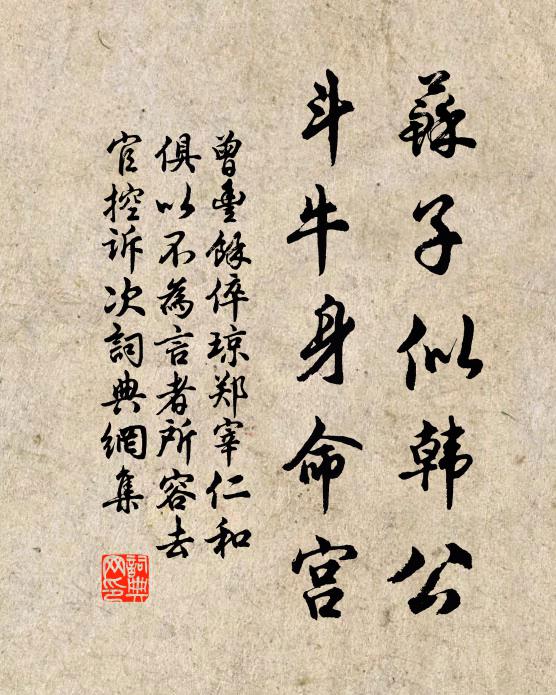 蘇子似韩公
斗牛身命宫
曾豐餘倅琼郑宰仁和
俱以不為言者所容去
官控诉次詞典網集
詞典網印